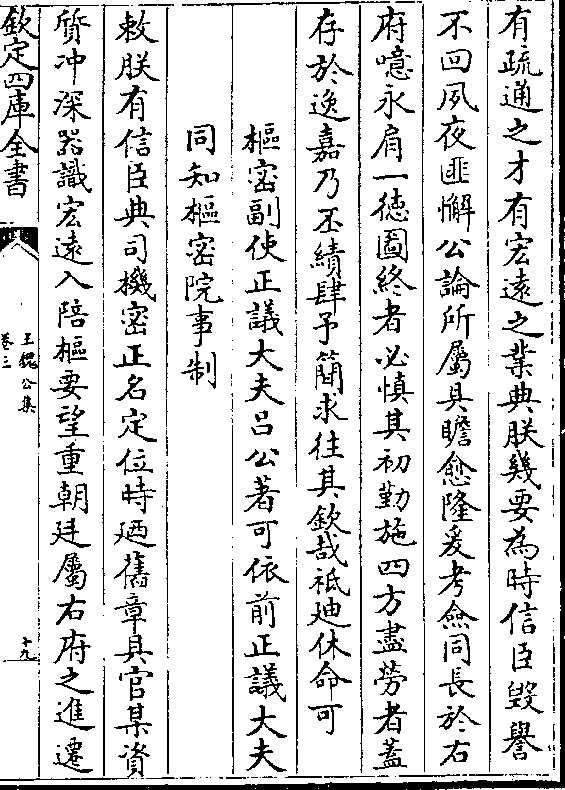 有疏通之才有宏遠之業典朕幾要為時信臣毀譽
不回夙夜匪懈公論所屬具瞻愈隆爰考僉同長於右
府噫永肩一徳圖終者必慎其初勤施四方盡勞者蓋
存於逸嘉乃丕績肆予簡求往其欽哉祗廸休命可
樞密副使正議大夫呂公著可依前正議大夫
同知樞密院事制
敕朕有信臣典司機密正名定位時廼舊章具官某資
質冲深器識宏遠入陪樞要望重朝廷屬右府之進遷
欽定四庫全書
王魏公集
卷三
十九